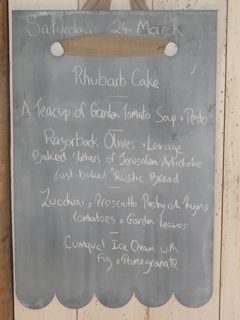 Saturday 24 March
Rhubarb Cake
A Teacup of Garden Tomato Soup + Pesto
Razorback Olives + Lovage
Baked slithers of Jerusalem Artichoke
Just-baked Rustic Bread
Zucchini + Prosciutto Pastry with
Tomatoes + Garden Leaves
Cumquat Ice Cream with
Fig + Pomegranate